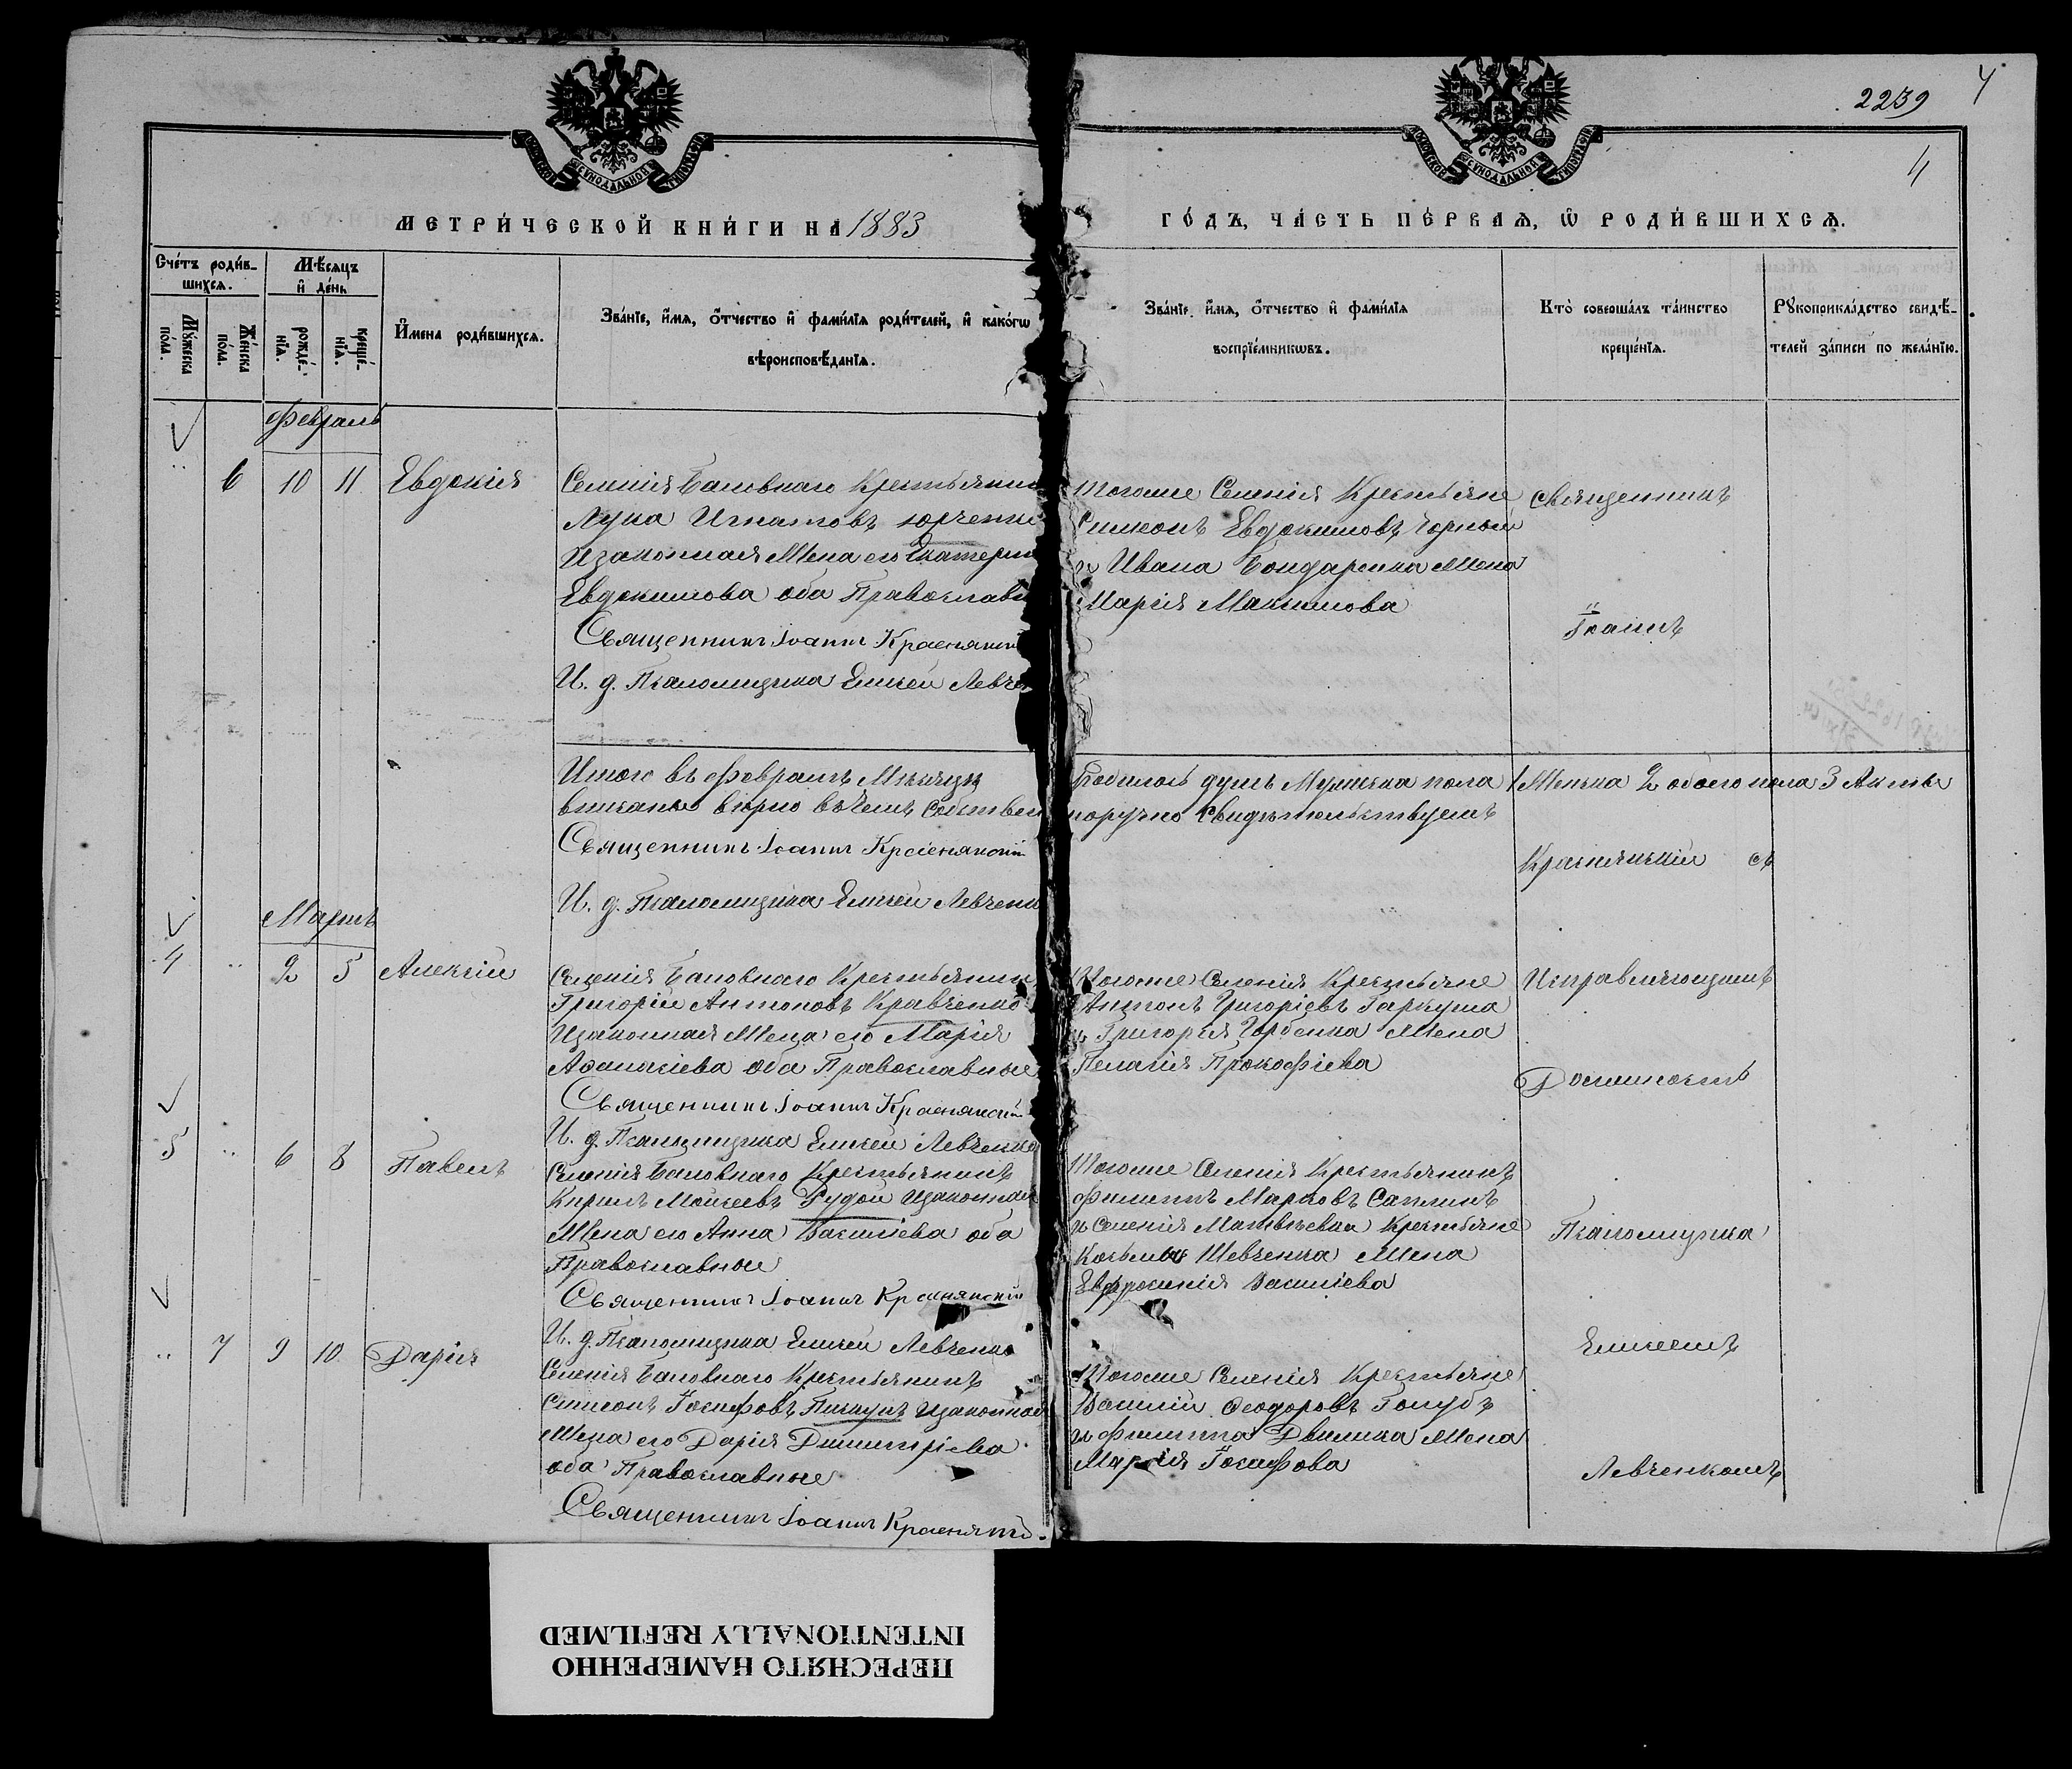 2239
4
4
СѴНОДАЛЬНОЙ
СѴНОДАЛЬНОЙ
МЕТРИ́ЧЕСКОЙ КНИ́ГИ НА 1883
ГО́ДЪ, ЧА́СТЬ ПЕ́РВАЯ, Ѿ РОДИ́ВШИХСЯ.
Сче́тъ роди́в-
шихся.
Мѣ́сяцъ
и҆ де́нь
Му́жеска
по́ла.
Же́нска
по́ла.
рожде́-
нїя.
креще́-
нїя.
И҆мена роди́вшихся.
Зва́нїе, и҆́мя, ѻ҆́тчество и҆ фами́лїя роди́телей, и҆ како́гѡ
вѣроисповѣ́данїя.
Зва́нїе, и҆́мя, ѻ҆́тчество и҆ фами́лїя
воспрїе́мникωвъ.
Кто̀ соверша́лъ та́инство
креще́нїя.
Рꙋкоприкла́дство свидѣ́-
телей за́писи по жела́нїю.
Февраль
6 10 11 Евдокія
Селенія Баговнаго Крестьянин
Лука Игнатовъ Юрченко
Изаконная Жена его Екатерин
Евдокимова оба Православн
Священникъ Іоаннъ Краснянскій
И. д. Псаломщика Елисей Левчен
Тогоже Селенія Крестьяне
Симеонъ Евдокимовъ Чорный
и Ивана Бондаренка Жена
Марія Максимова
Священникъ
Іоаннъ
Итого въ Февралѣ Мѣсяцѣ
вписано вѣрно въ чемъ Собствен
Священникъ Іоаннъ Краснянскій
И. д. Псаломщика Елисей Левченк
Родилось душъ Мужеска пола 1 Женска 2 обоего пола 3 Акты
норучно Свидѣтельствуемъ
Краснянскій съ
Мартъ
4 " 2 5 Алексій
Селенія Баговнаго Крестьянин
Григорій Антоновъ Кравченко
Изаконная Жена его Марія
Аѳанасіева оба Православные
Священникъ Іоаннъ Краснянскій
И. д. Псаломщика Елисей Левченко
Тогоже Селенія Крестьяне
Антонъ Григоріевъ Гаркуша
и Григорія Горбенка Жена
Пелагія Прокофіева
Исправляющимъ
Должность
5 " 6 8 Павелъ
Селенія Баговнаго Крестьянинъ
Кирилъ Моисеевъ Рудой Изаконная
Жена его Анна Василіева оба
Православные
Священникъ Іоаннъ Краснянскій
И. д. Псаломщика Елисей Левченко
Тогоже Селенія Крестьянинъ
Филиппъ Марковъ
и Селенія Матвѣевки Крестьяне
Косьмы Шевченка Жена
Евфросинія Василіева
Псаломщика
Елисеемъ
" 7 9 10 Дарія
Селенія Баговнаго Крестьянинъ
Симеонъ Іосифовъ Изаконная
Жена его Дарія Димитріева
оба Православные
Священникъ Іоаннъ Краснянскій
Тогоже Селенія Крестьяне
Василій Ѳеодоровъ Голубъ
и Филиппа Жена
Марія Іосифова
Левченкомъ
ПЕРЕСНЯТО НАМЕРЕННО
INTENTIONALLY REFILMED